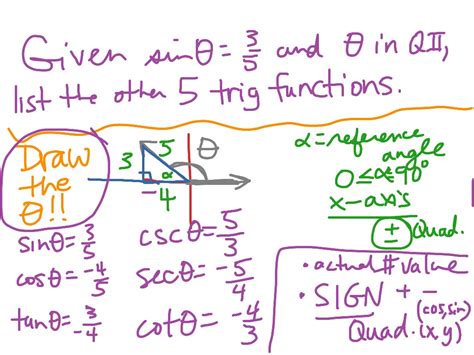 Given sinθ = 3/5 and θ in QII,
list the other 5 trig functions.
Draw the θ!!
3 5 θ
α
-4
α = reference angle
0 ≤ α ≤ 90°
x-axis
± Quad.
sinθ = 3/5 cscθ = 5/3
cosθ = -4/5 secθ = -5/4
tanθ = 3/-4 cotθ = -4/3
• actual # value
• SIGN + -
(cos, sin)
Quad. (x, y)